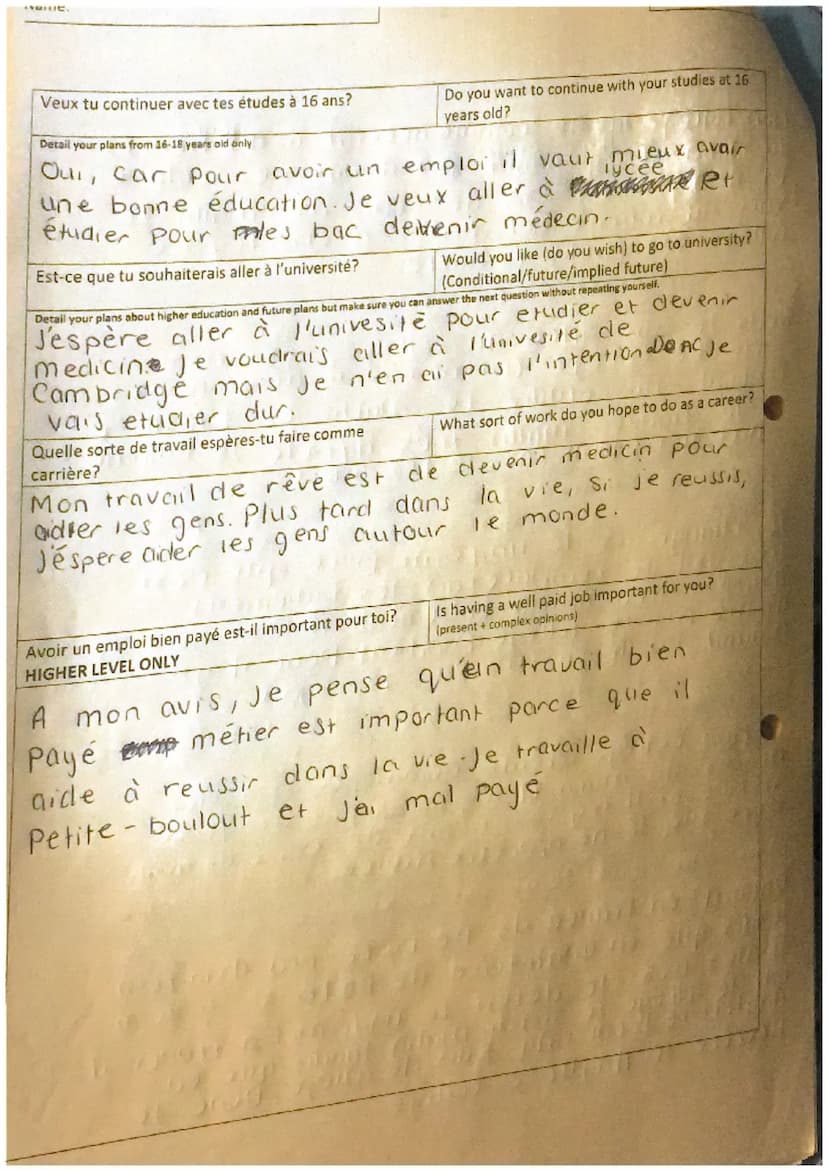 Name:
Veux tu continuer avec tes études à 16 ans?
Do you want to continue with your studies at 16
years old?
Detail your plans from 16-18 years old only
Oui, car pour avoir un emploi il vaut mieux avoir
une bonne éducation. Je veux aller à lycée et
étudier pour mes bac devenir médecin.
Est-ce que tu souhaiterais aller à l'université?
Would you like (do you wish) to go to university?
(Conditional/future/implied future)
Detail your plans about higher education and future plans but make sure you can answer the next question without repeating yourself.
J'espère aller à l'univesité pour etudier et devenir
medicine Je voudrais aller à l'univesité de
Cambridge mais je n'en ai pas l'intention Donc Je
vais etudier dur.
Quelle sorte de travail espères-tu faire comme
carrière?
What sort of work do you hope to do as a career?
Mon travail de rêve est de devenir medicin pour
aider les gens. Plus tard dans la vie, si je reussis,
J'éspere aider les gens autour le monde.
Avoir un emploi bien payé est-il important pour toi?
HIGHER LEVEL ONLY
Is having a well paid job important for you?
(present + complex opinions)
A mon avis, Je pense qu'un travail bien
Payé métier est important parce que il
aide à reussir dans la vie. Je travaille à
Petite-boulout et J'ai mal payé